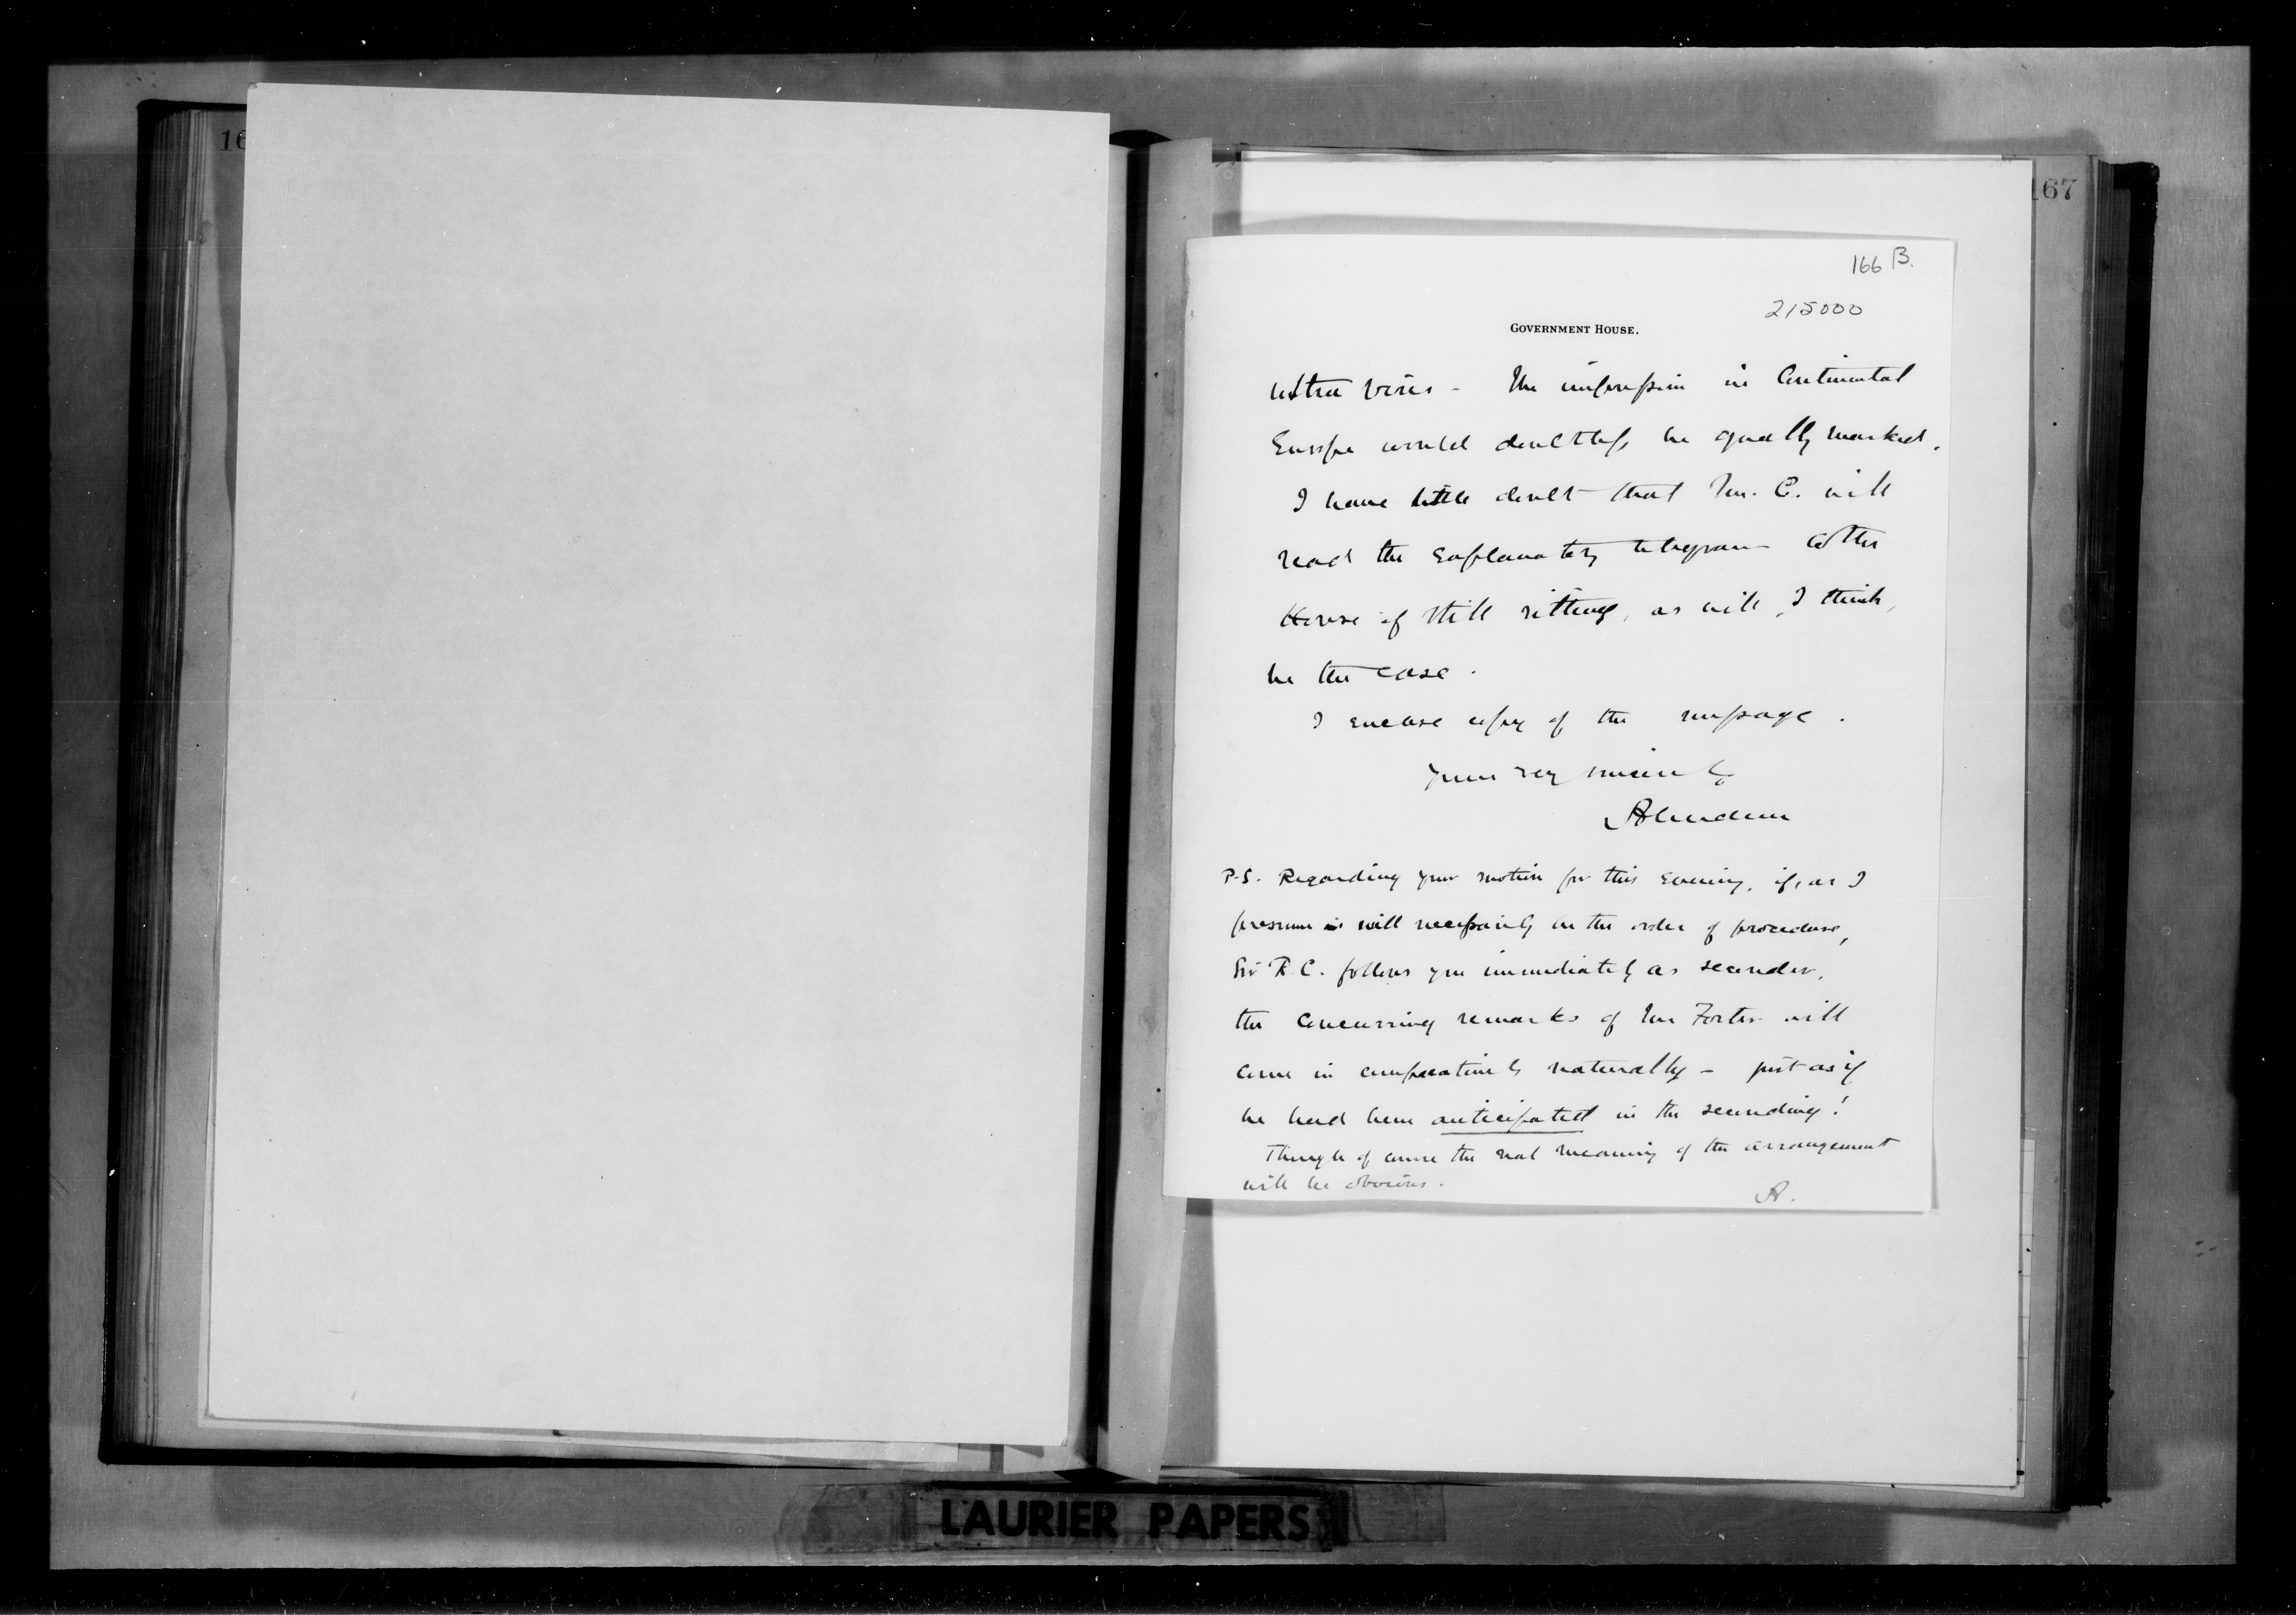 16
167
166 B.
215000
GOVERNMENT HOUSE.
ultra vires - The impression in Continental
Europe would doubtless be equally marked.
I have little doubt that Mr. C. will
read the explanatory telegram to the
House if still sitting, as will, I think,
be the case.
I enclose copy of the message.
Yours very sincerely
Aberdeen
P.S. Regarding your motion for this evening, if, as I
presume will necessarily be the order of procedure,
Sir R. C. follows you immediately as seconder,
the concurring remarks of Mr Foster will
come in comparatively naturally - just as if
he had been anticipated in the seconding!
Though of course the real meaning of the arrangement
will be obvious.
A.
LAURIER PAPERS